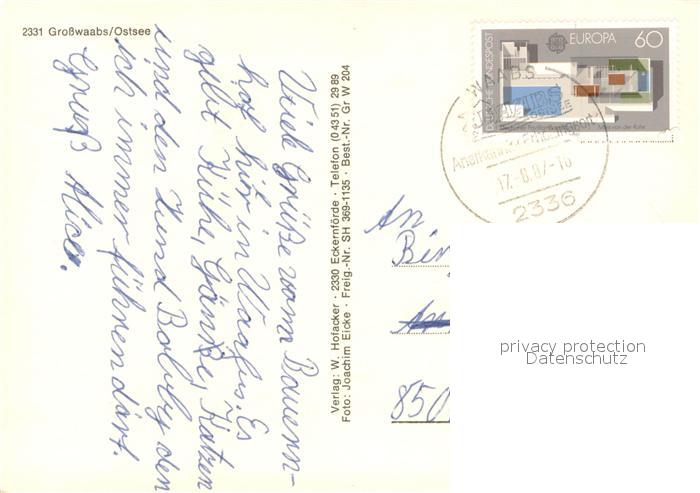 2331 Großwaabs/Ostsee
Viele Grüße vom Bauern-
hof hier in Waabs. Es
gibt Kühe, Gänse, Katzen
und den Hund Bobby den
ich immer führen darf.
Gruß Alice.
Verlag: W. Hofacker · 2330 Eckernförde · Telefon (0 43 51) 29 89
Foto: Joachim Eicke · Freig.-Nr. SH 369-1135 · Best.-Nr. Gr W 204
DEUTSCHE BUNDESPOST
EUROPA 60
Deutscher Pavillon Barcelona Mies van der Rohe
WAABS
OSTSEE
17.-8.87-10
2336
An
850
privacy protection
Datenschutz